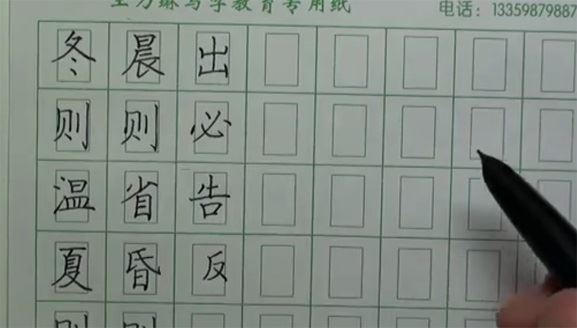 练写字教育专用纸
电话：13359879887
冬则温夏则
晨则省昏则
出必告反